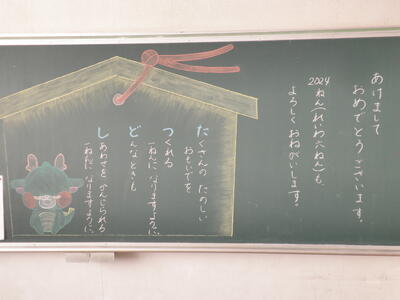 あけまして
おめでとうございます。
2024ねん(れいわ六ねん)も、
よろしくおねがいします。
たくさんの たのしい
おもいでを
つくれる
一ねんに なりますように。
どんなときも
しあわせを かんじられる
一ねんに なりますように。